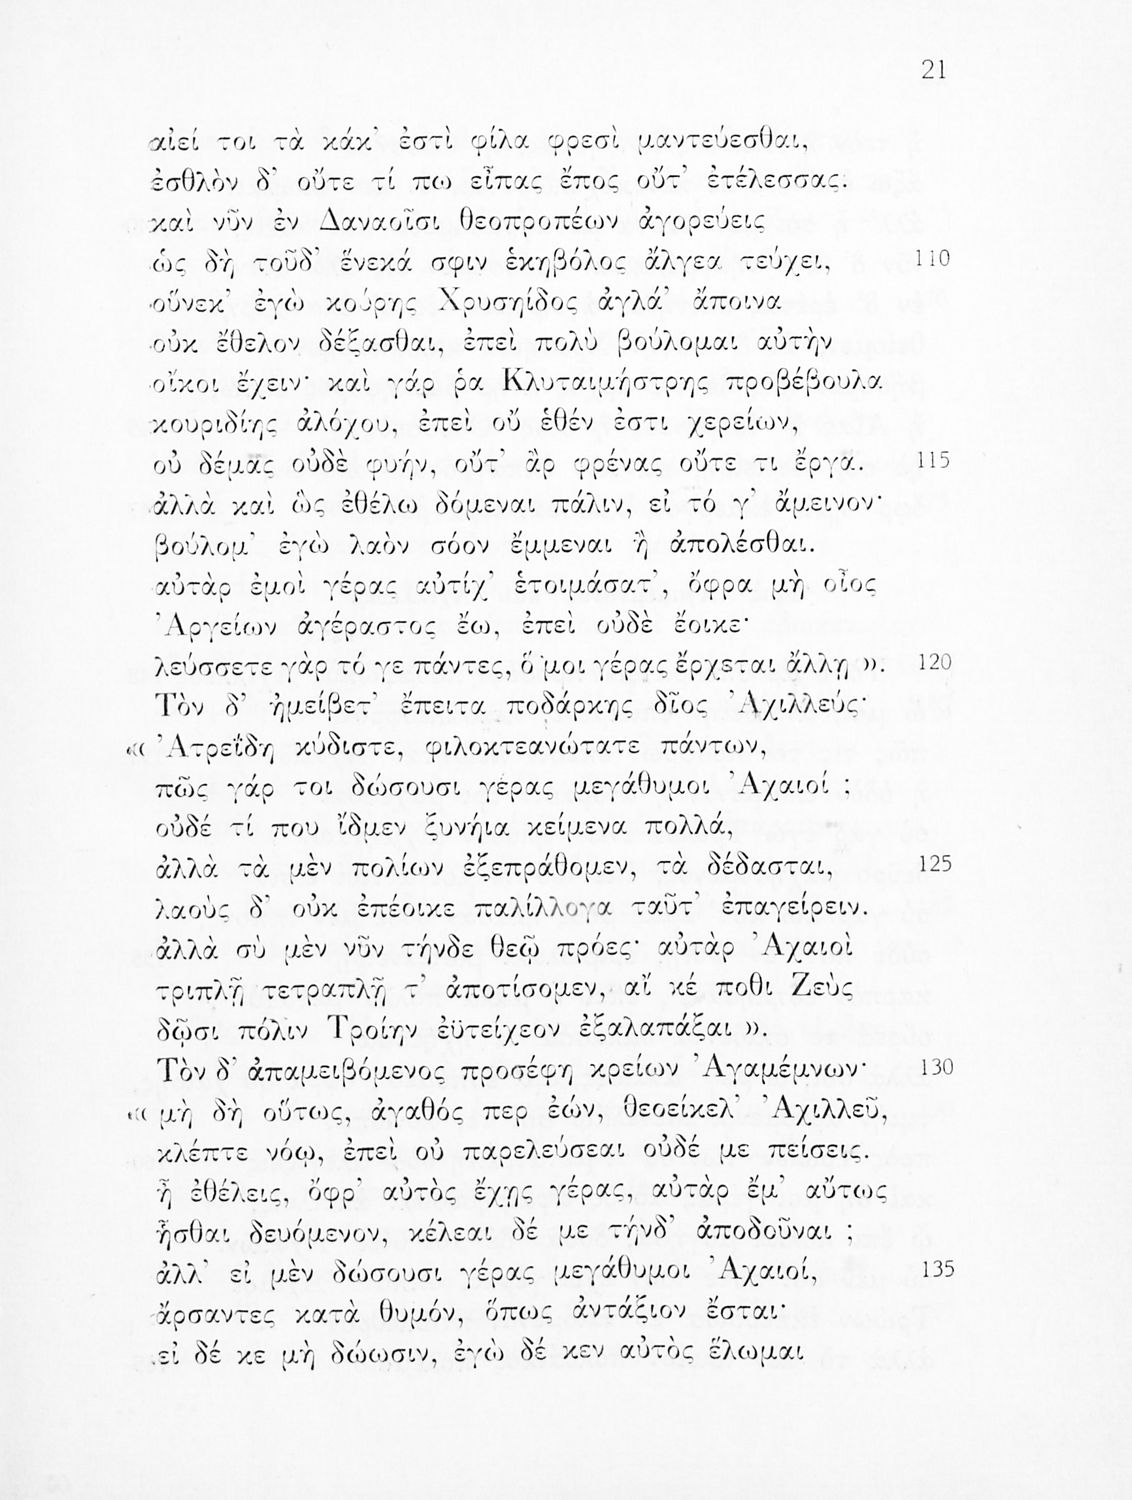 21
αἰεί τοι τὰ κάκ’ ἐστὶ φίλα φρεσὶ μαντεύεσθαι,
ἐσθλὸν δ’ οὔτε τί πω εἶπας ἔπος οὔτ’ ἐτέλεσσας·
καὶ νῦν ἐν Δαναοῖσι θεοπροπέων ἀγορεύεις
ὡς δὴ τοῦδ’ ἕνεκά σφιν ἑκηβόλος ἄλγεα τεύχει, 110
οὕνεκ’ ἐγὼ κούρης Χρυσηίδος ἀγλά’ ἄποινα
οὐκ ἔθελον δέξασθαι, ἐπεὶ πολὺ βούλομαι αὐτὴν
οἴκοι ἔχειν· καὶ γάρ ῥα Κλυταιμήστρης προβέβουλα
κουριδίης ἀλόχου, ἐπεὶ οὔ ἑθέν ἐστι χερείων,
οὐ δέμας οὐδὲ φυήν, οὔτ’ ἂρ φρένας οὔτε τι ἔργα. 115
ἀλλὰ καὶ ὣς ἐθέλω δόμεναι πάλιν, εἰ τό γ’ ἄμεινον·
βούλομ’ ἐγὼ λαὸν σόον ἔμμεναι ἢ ἀπολέσθαι.
αὐτὰρ ἐμοὶ γέρας αὐτίχ’ ἑτοιμάσατ’, ὄφρα μὴ οἶος
Ἀργείων ἀγέραστος ἔω, ἐπεὶ οὐδὲ ἔοικε·
λεύσσετε γὰρ τό γε πάντες, ὅ μοι γέρας ἔρχεται ἄλλῃ ». 120
Τὸν δ’ ἠμείβετ’ ἔπειτα ποδάρκης δῖος Ἀχιλλεύς·
« Ἀτρεΐδη κύδιστε, φιλοκτεανώτατε πάντων,
πῶς γάρ τοι δώσουσι γέρας μεγάθυμοι Ἀχαιοί ;
οὐδέ τί που ἴδμεν ξυνήια κείμενα πολλά,
ἀλλὰ τὰ μὲν πολίων ἐξεπράθομεν, τὰ δέδασται, 125
λαοὺς δ’ οὐκ ἐπέοικε παλίλλογα ταῦτ’ ἐπαγείρειν.
ἀλλὰ σὺ μὲν νῦν τήνδε θεῷ πρόες· αὐτὰρ Ἀχαιοὶ
τριπλῇ τετραπλῇ τ’ ἀποτίσομεν, αἴ κέ ποθι Ζεὺς
δῷσι πόλιν Τροίην ἐϋτείχεον ἐξαλαπάξαι ».
Τὸν δ’ ἀπαμειβόμενος προσέφη κρείων Ἀγαμέμνων· 130
« μὴ δὴ οὕτως, ἀγαθός περ ἐών, θεοείκελ’ Ἀχιλλεῦ,
κλέπτε νόῳ, ἐπεὶ οὐ παρελεύσεαι οὐδέ με πείσεις.
ἦ ἐθέλεις, ὄφρ’ αὐτὸς ἔχῃς γέρας, αὐτὰρ ἔμ’ αὔτως
ἧσθαι δευόμενον, κέλεαι δέ με τήνδ’ ἀποδοῦναι ;
ἀλλ’ εἰ μὲν δώσουσι γέρας μεγάθυμοι Ἀχαιοί, 135
ἄρσαντες κατὰ θυμόν, ὅπως ἀντάξιον ἔσται·
εἰ δέ κε μὴ δώωσιν, ἐγὼ δέ κεν αὐτὸς ἕλωμαι